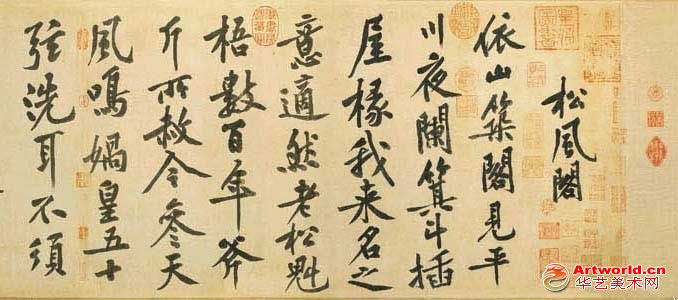 松風閣
依山築閣見平
川夜闌箕斗插
屋椽我来名之
意適然老松魁
梧數百年斧
斤所赦今參天
風鳴媧皇五十
弦洗耳不須
Artworld.cn
华艺美术网